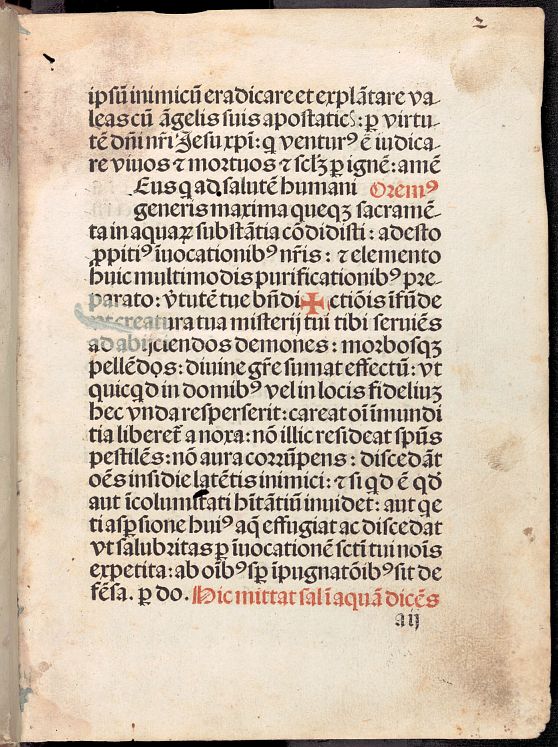 2
ipsū inimicū eradicare et explātare va-
leas cū āgelis suis apostaticꝭ: ꝑ virtu-
tē dn̄i nr̄i Jesu xp̄i: q̄ venturꝰ ē iudica-
re viuos ⁊ mortuos ⁊ sclꝫ ꝑ ignē: amē
Eus q ad salutē humani Oremꝰ
generis maxima queqꝫ sacramē-
ta in aquaꝝ substātia cōdidisti: adesto
ꝓpitiꝰ īuocationibꝰ nr̄is: ⁊ elemento
huic multimodis purificationibꝰ pre-
parato: v̄tutē tue bn̄di ✠ ctiōis īfūde
vt creatura tua misterij tui tibi seruiēs
ad abijciendos demones: morbosqꝫ
pellēdos: diuine gr̄e sumat effectū: vt
quicqd in domibꝰ vel in locis fideliuꝫ
hec vnda resperserit: careat oī īmundi
tia liberet̄ a noxa: nō illic resideat spūs
pestilēs: nō aura corrūpens: discedāt
oēs insidie latētis inimici: ⁊ si qd ē qd
aut īcolumitati hītātiū inuidet: aut qe
ti asꝑsione huiꝰ aq̄ effugiat ac discedat
vt salubritas ꝑ īuocationē sctī tui noīs
expetita: ab oībꝰ sꝑ īpugnatōibꝰ sit de
fēsa. ꝑ do. Hic mittat sal ī aquā dicēs
aij